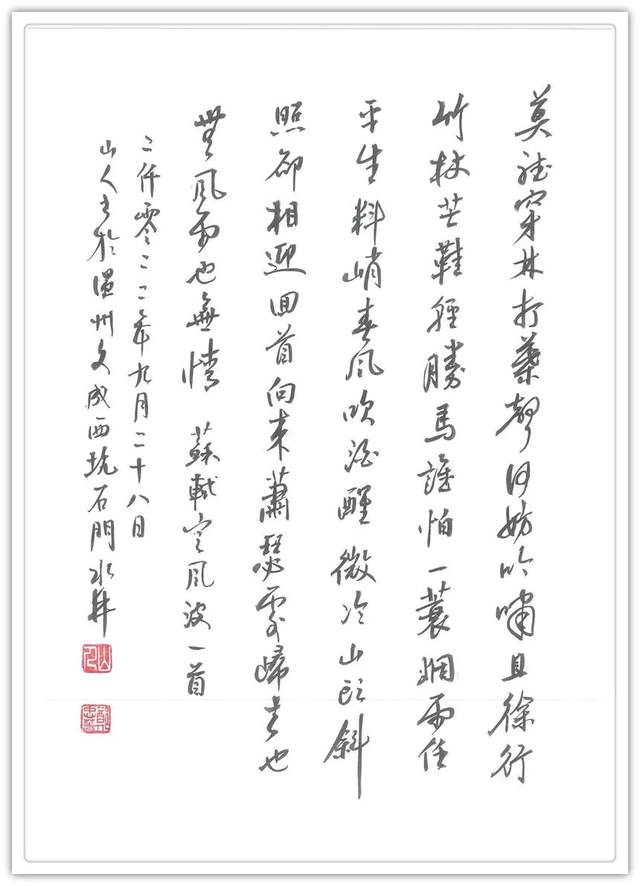 莫聽穿林打葉聲何妨吟嘯且徐行
竹杖芒鞋輕勝馬誰怕一蓑烟雨任
平生料峭春風吹酒醒微冷山頭斜
照卻相迎回首向來蕭瑟處歸去也
無風雨也無情 蘇軾定風波一首
二仟零二二年九月二十八日
山人書於溫州文成西坑石門水井
山人